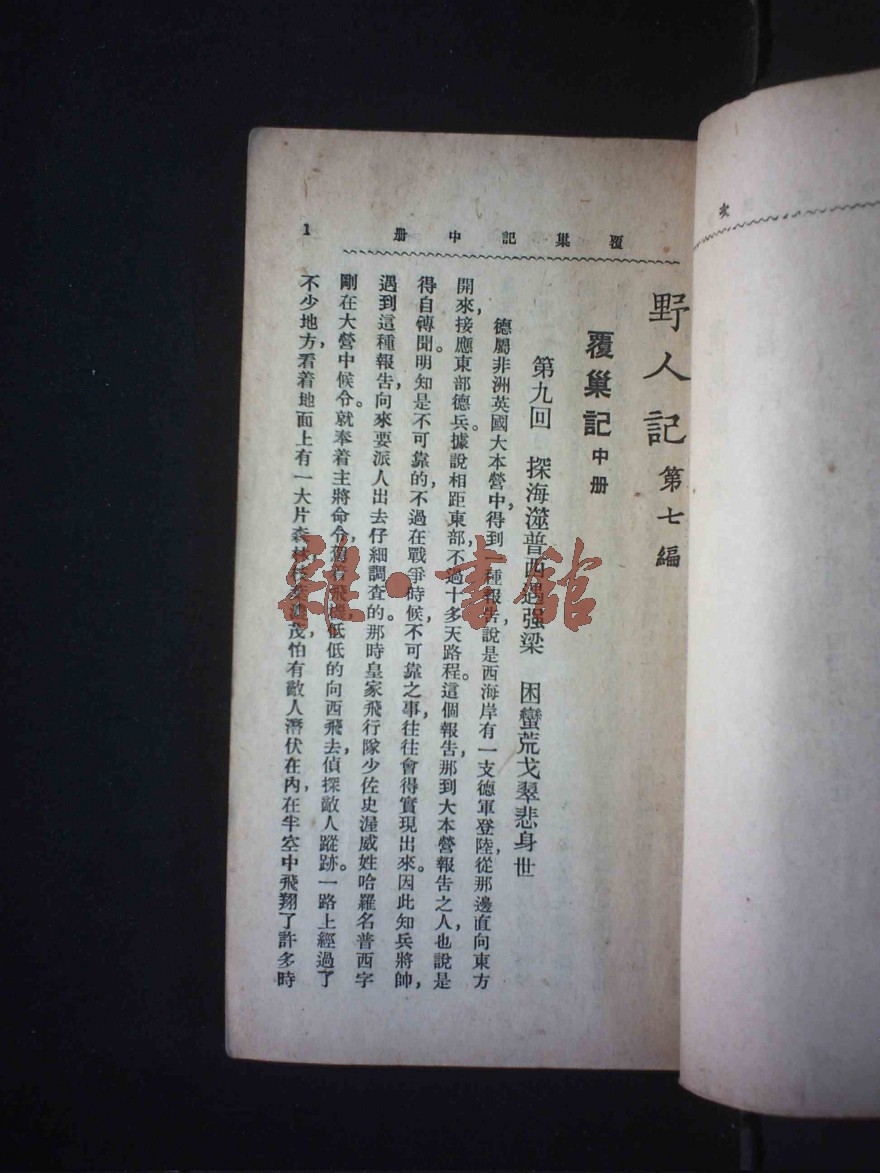 次
覆巢記中冊
1
野人記 第七編
覆巢記 中册
第九回 探海澨普西遇强梁 困蠻荒戈翠悲身世
德屬非洲英國大本營中，得到一種報告，說是西海岸有一支德軍登陸，從那邊直向東方
開來，接應東部德兵。據說相距東部，不過十多天路程。這個報告，那到大本營報告之人，也說是
得自傳聞。明知是不可靠的，不過在戰爭時候，不可靠之事，往往會得實現出來。因此知兵將帥，
遇到這種報告，向來要派人出去仔細調查的。那時皇家飛行隊少佐史渥威姓哈羅名普西字
剛在大營中候令。就奉着主將命令，駕着飛機，低低的向西飛去，偵探敵人蹤跡。一路上經過了
不少地方，看着地面上有一大片森林，枝葉濃茂，怕有敵人潛伏在內，在半空中飛翔了許多時
雜·書館